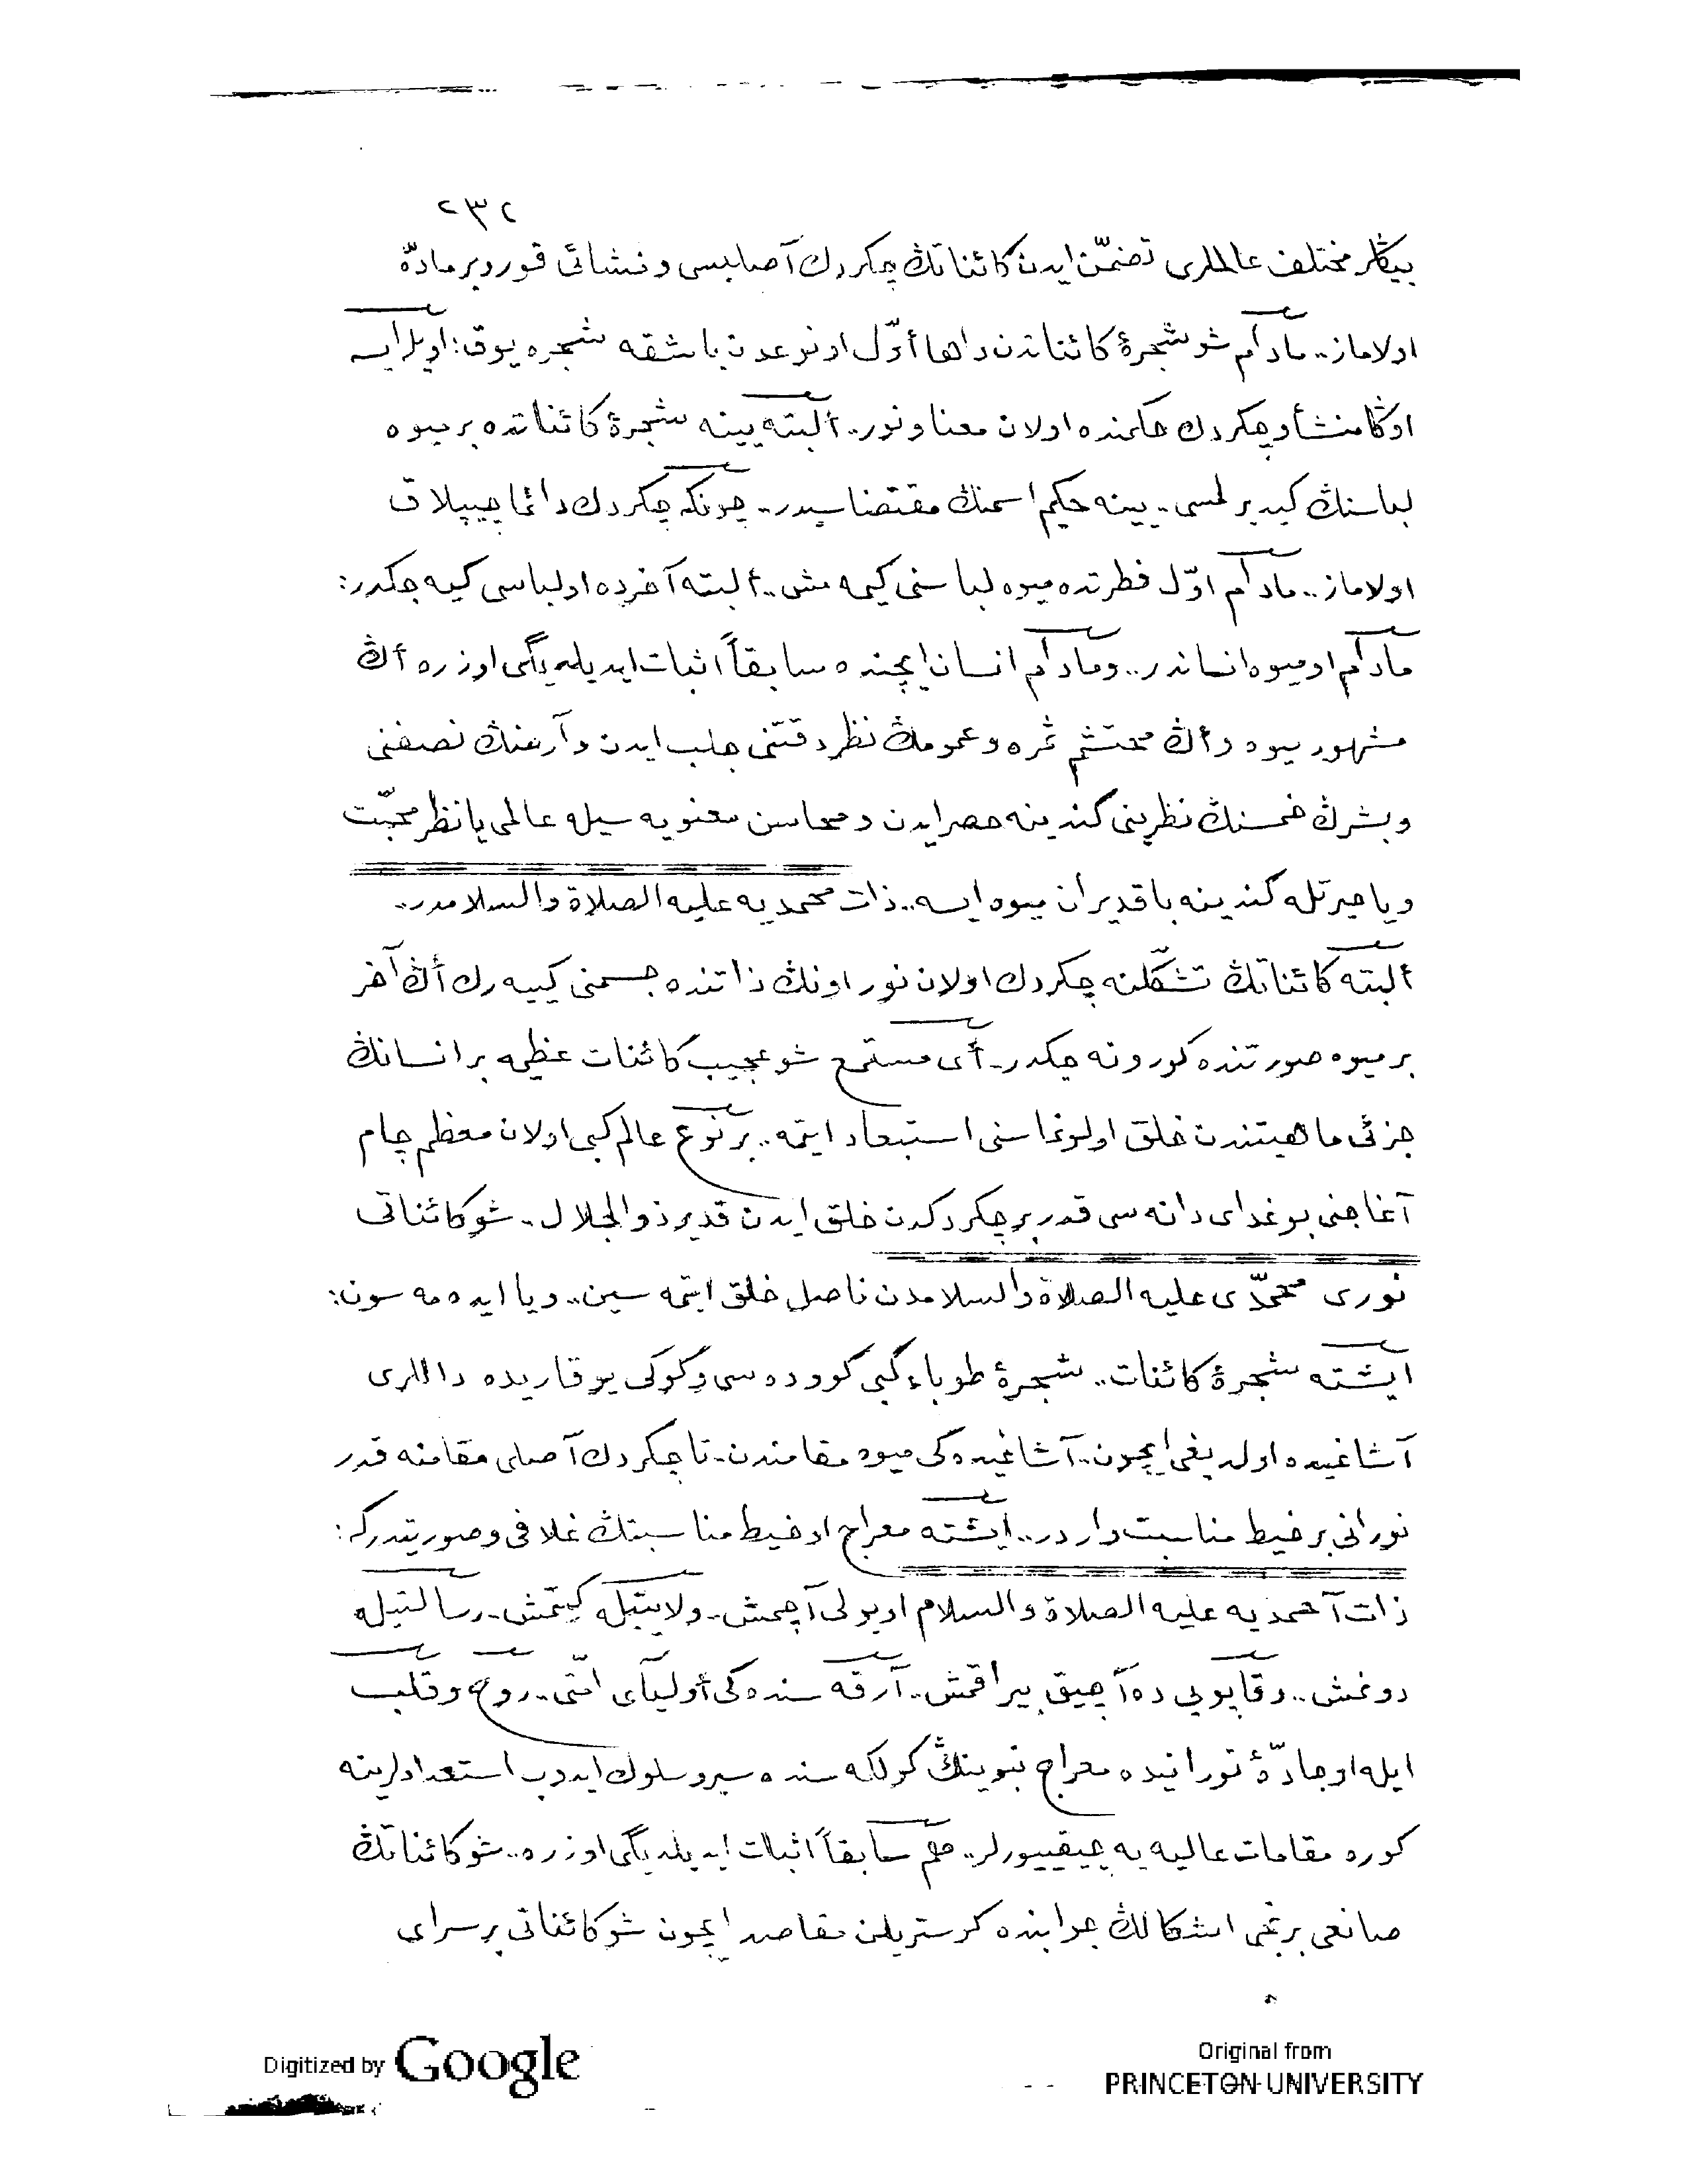 ٢٣٢
بيڭلر مختلف عالملرى تضمّن ايدن كائناتڭ چكردك آصليسى و منشائى قورو بر مادّه
اولاماز.. مادام شو شجرۀ كائناتدن داها أوّل او نوعدن باشقه شجره يوق؛ اويله ايسه
اوڭا منشأ و چكردك حكمنده اولان معنا و نور.. ألبته يينه شجرۀ كائناتده بر ميوه
لباسنڭ كيديرلمسى.. يينه حكيم اسمنڭ مقتضاسيدر.. چونكه چكردك دائما چيپلاق
اولاماز.. مادام اوّل فطرتده ميوه لباسنى كيمه مش.. ألبته آخرده او لباسى كيه جكدر:
مادام او ميوه انساندر.. و مادام انسان ايچنده سابقاً اثبات ايديلديگى اوزره أڭ
مشهور ميوه و أڭ محتشم ثمره و عمومڭ نظر دقتنى جلب ايدن و آرضنڭ نصفنى
و بشرڭ خمسنڭ نظرينى كندينه حصر ايدن و محاسن معنويه سيله عالمى يا نظر محبّت
ويا حيرتله كندينه باقديران ميوه ايسه.. ذات محمديه عليه الصلاة والسلامدر..
ألبته كائناتڭ تشكّلنه چكردك اولان نور اونڭ ذاتنده جسمنى كييه رك أڭ آخر
بر ميوه صورتنده كورونه جكدر.. أى مستمع شو عجيب كائنات عظيمه بر انسانڭ
جزئى ماهيتندن خلق اولونماسنى استبعاد ايتمه.. بر نوع عالم كبى اولان معظم چام
آغاجنى بوغداى دانه سى قدر بر چكردكدن خلق ايدن قدير ذوالجلال.. شو كائناتى
نورى محمّدى عليه الصلاة والسلامدن ناصل خلق ايتمه سين.. ويا ايده مه سون:
ايشته شجرۀ كائنات.. شجرۀ طوباء كبى كووده سى و كوكى يوقاريده داللرى
آشاغيده اولديغى ايچون.. آشاغيده كى ميوه مقامندن.. تا چكردك آصلى مقامنه قدر
نورانى بر خيط مناسبت واردر.. ايشته معراج او خيط مناسبتڭ غلافى و صورتيدركه:
ذات آحمديه عليه الصلاة والسلام او يولى آچمش.. ولايتيله كيتمش.. رسالتيله
دونمش.. و قاپويى ده آچيق بيراقمش.. آرقه سنده كى أولياى امّتى.. روح و قلب
ايله او جادّۀ نورانيده معراج نبوينڭ كولكه سنده سير و سلوك ايدوب استعدادلرينه
كوره مقامات عاليه يه چيقييورلر.. هم سابقاً اثبات ايديلديگى اوزره.. شو كائناتڭ
صانعى برنجى اشكالڭ جوابنده كوستريلن مقاصد ايچون شو كائناتى بر سراى
Digitized by Google
Original from
PRINCETON UNIVERSITY